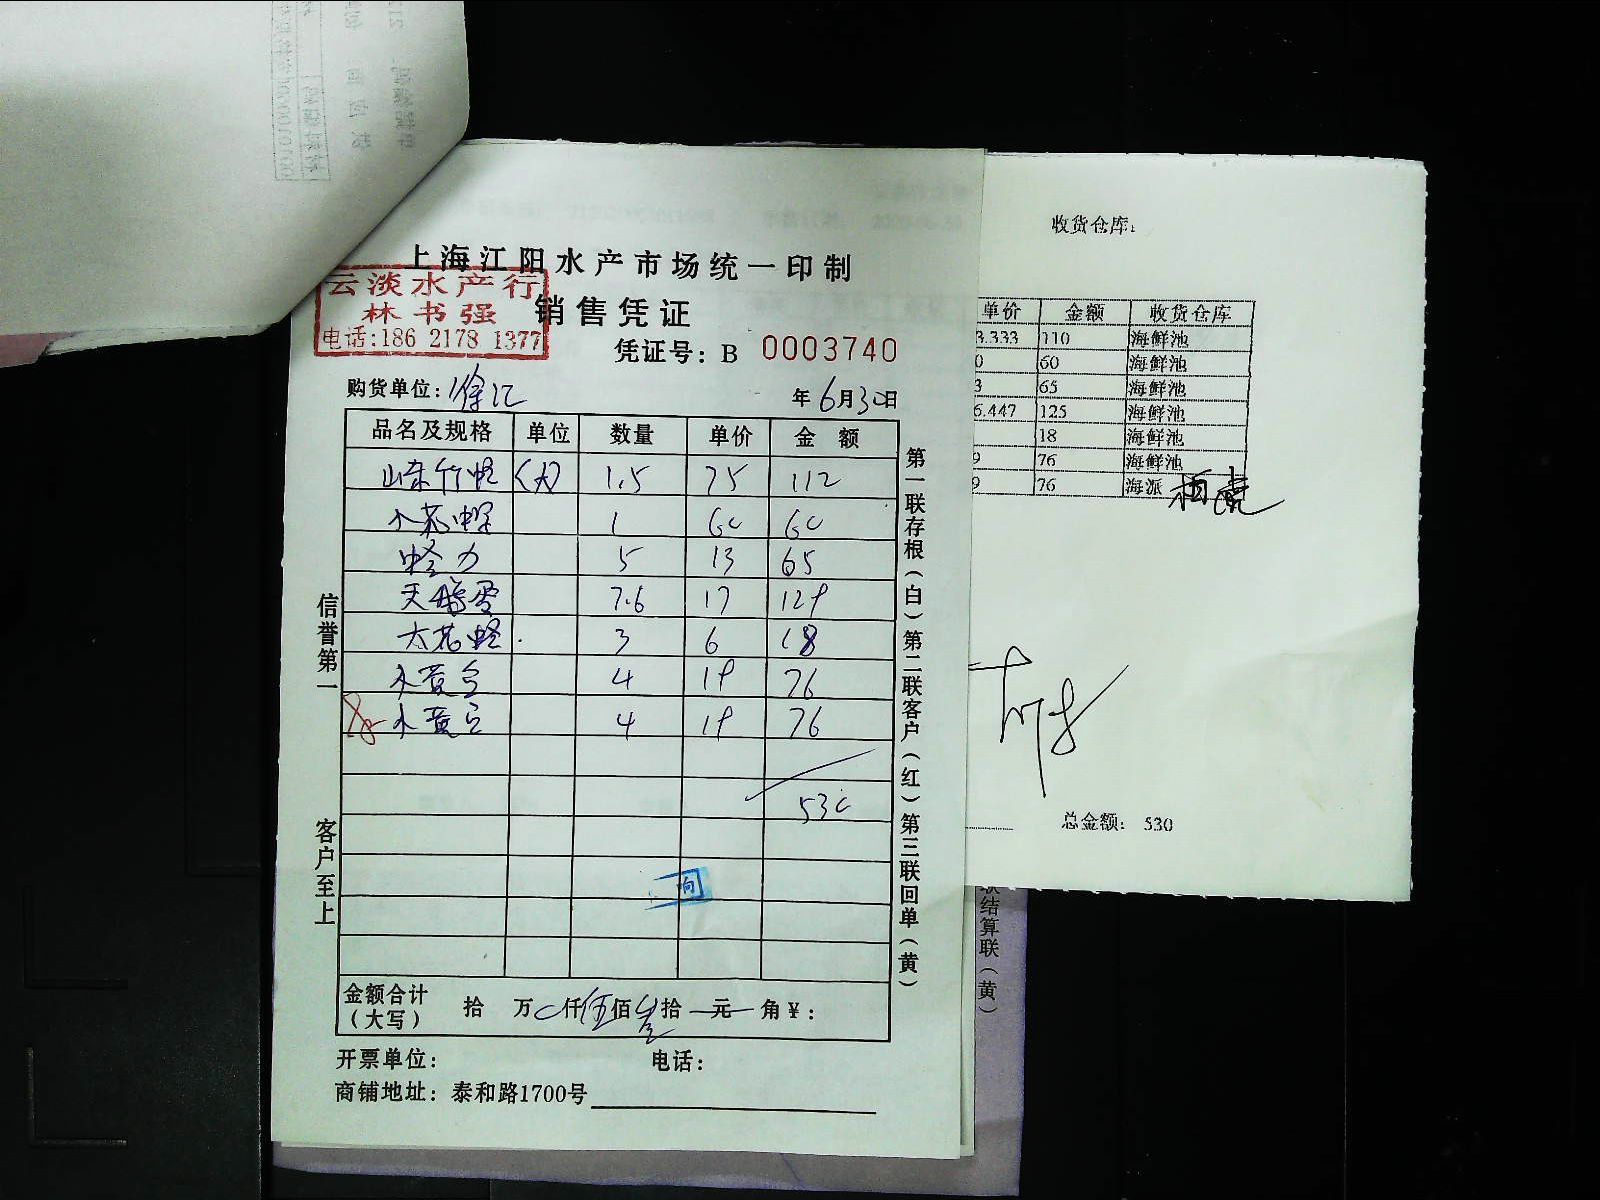 上海江阳水产市场统一印制
云淡水产行
林书强
电话:186 2178 1377
销售凭证
凭证号: B 0003740
购货单位: 徐汇
年6月30日
品名及规格 单位 数量 单价 金额
山东竹蛏 (大) 1.5 75 112
小花甲 1 60 60
5 13 65
天鹅蛋 7.6 17 129
大花蛤 3 6 18
小黄 4 19 76
小黄 4 19 76
530
金额合计(大写) 拾 万 仟伍佰叁拾 元 角 ¥:
开票单位: 电话:
商铺地址: 泰和路1700号
信誉第一 客户至上
第一联存根(白) 第二联客户(红) 第三联回单(黄)
收货仓库:
单价 金额 收货仓库
3.333 110 海鲜池
0 60 海鲜池
3 65 海鲜池
6.447 125 海鲜池
18 海鲜池
9 76 海鲜池
9 76 海派
总金额: 530
联结算联(黄)